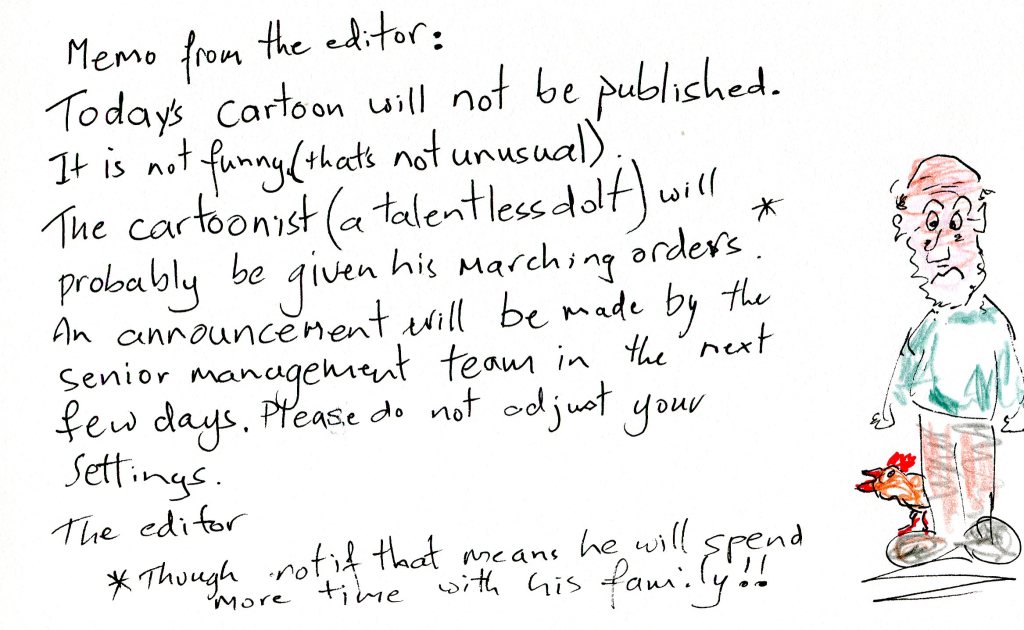 Memo from the editor:
Today's cartoon will not be published.
It is not funny,(that's not unusual).
The cartoonist (a talentless dolt) will
probably be given his marching orders. *
An announcement will be made by the
senior management team in the next
few days. Please do not adjust your
settings.
The editor
* Though not if that means he will spend
more time with his family!!